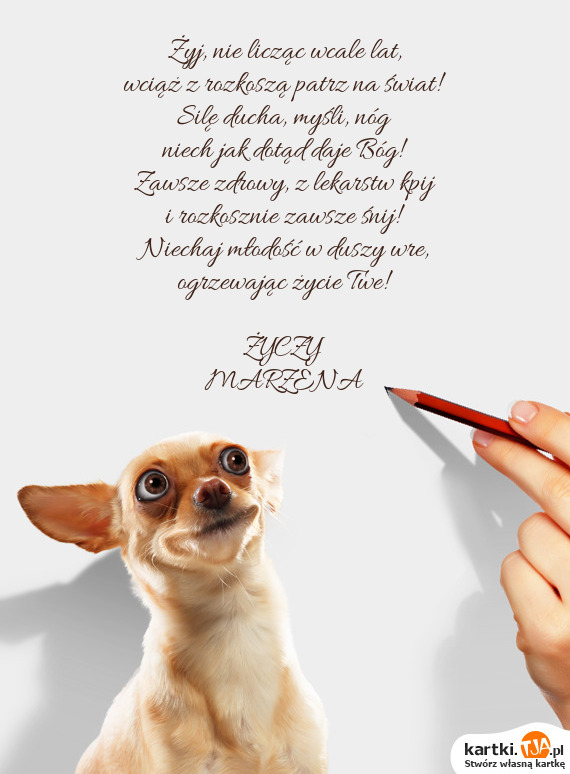 Żyj, nie licząc wcale lat,
wciąż z rozkoszą patrz na świat!
Siłę ducha, myśli, nóg
niech jak dotąd daje Bóg!
Zawsze zdrowy, z lekarstw kpij
i rozkosznie zawsze śnij!
Niechaj młodość w duszy wre,
ogrzewając życie Twe!
ŻYCZY
MARZENA
kartki.TJA.pl
Stwórz własną kartkę